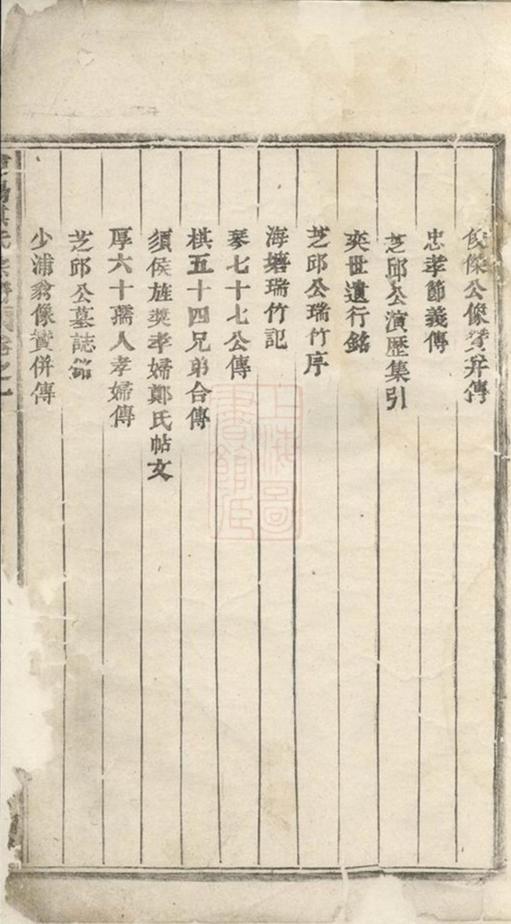 俊傑公像贊并傳
忠孝節義傳
芝邱公演歷集引
奕世遺行銘
芝邱公瑞竹序
海塘瑞竹記
琴七十七公傳
棋五十四兄弟合傳
須侯旌奬孝婦鄭氏帖文
厚六十孺人孝婦傳
芝邱公墓誌銘
少浦翁像贊併傳
上海圖
書館藏